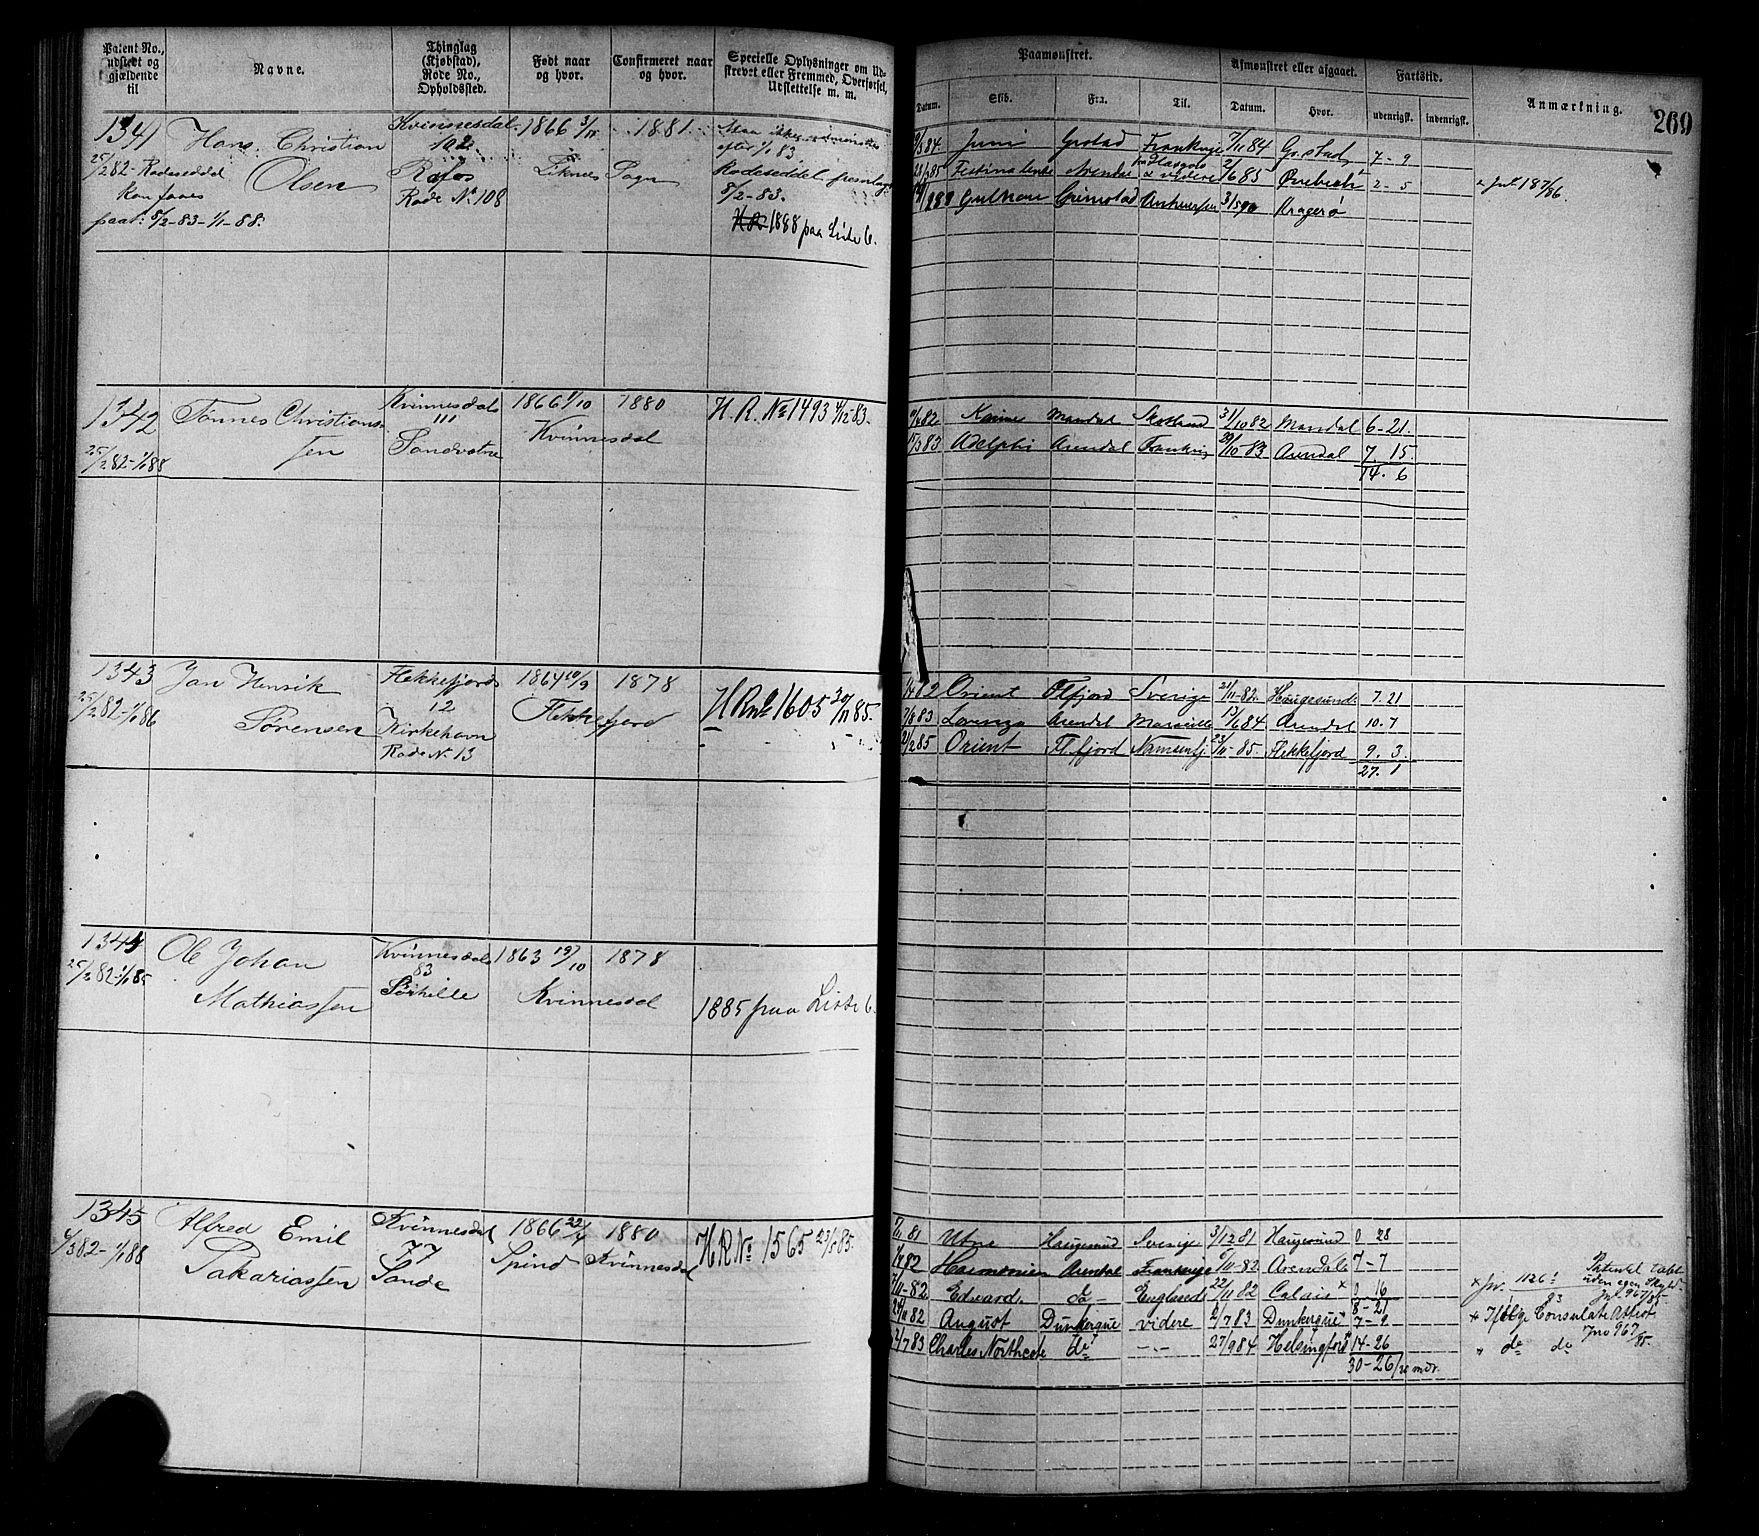 Patent No., udstedt og gjældende til
Navne.
Thinglag (Kjøbstad), Rode No., Opholdssted.
Født naar og hvor.
Confirmeret naar og hvor.
Specielle Oplysninger om Udskrevet eller Fremmed, Overførsel, Udslettelse m. m.
Paamønstret.
Datum.
Skib.
Fra.
Til.
Afmønstret eller afgaaet.
Datum.
Hvor.
Fartstid.
udenrigsk.
indenrigsk.
Anmærkning.
269
1341
25/2 82 - Rodeseddel
Kan faaes
paat: 8/2-83-1/1-88.
Hans Christian
Olsen
Kvinnesdal
102
Rafos
Rode No. 108
1866 3/
Liknes Sogn
1881
efter 1/ 83
Rodeseddel fremlagt
8/2-83.
1888 paa Liste 6.
84 Juni Grstad Frankrige 7/11 84 Grstad 7 - 9
85 Festina lente Arendal Glasgow & videre 2/6 85 2 - 5 x Jnl 187/86.
Grimstad Antwerpen 3/5 90 Kragerø
1342
25/2 82-1/1 88
Tønnes Christians-
sen
Kvinnesdal
111
Sandvatne
1866 1/10
Kvinnesdal
1880
H. R. No 1493 4/12-83.
82 Karine Mandal Skotland 31/10 82 Mandal 6-21.
83 Adelphi Arendal Frankrig 29/10 83 Arendal 7. 15.
14. 6
1343
25/2 82-1/1 86
Jan Henrik
Sørensen
Flekkefjords
12
Kirkehavn
Rode No. 13
1864 10/9
Flekkefjord
1878
H R No 1605 30/11 85.
82 Orient Flfjord Sverige 21/11-82. Haugesund 7. 21
83 Lorenzo Arendal Marseille 17/6 84 Arendal 10. 7
21/2 85 Orient Fl.fjord Namsenfj. 23/11-85. Flekkefjord 9. 3.
27. 1
1344
25/2 82-1/1 85
Ole Johan
Mathiassen
Kvinnesdals
83
1863 19/10
Kvinnesdal
1878
1885 paa Liste 6.
1345
6/3 82-1/1 88
Alfred Emil
Sakariassen
Kvinnesdal
77
Sande
1866 22/4
Spind
1880
Kvinnesdal
H R No. 1565 23/5 85.
81 Utne Haugesund Sverige 3/12 81 Haugesund 0 28
82 Harmonien Arendal Frankrige 6/11-82 Arendal 7 - 7
7/11-82 Edward. do - England 22/11 82 Calais x 0 16
8 - 21
24/11 82 August Dunkerque videre 2/7 83 Dunkerque x 7 - 9
2/7 83 Charles Northcote do - - 27/9 84 Helsingfors 14 - 26
30 - 26/30 mdr.
x Jn. 1126/83
Patentet tabt
uden egen Skyld.
Jnl 967/85.
x Ifølge Consulats Attest
Jno 967/85.
" do do